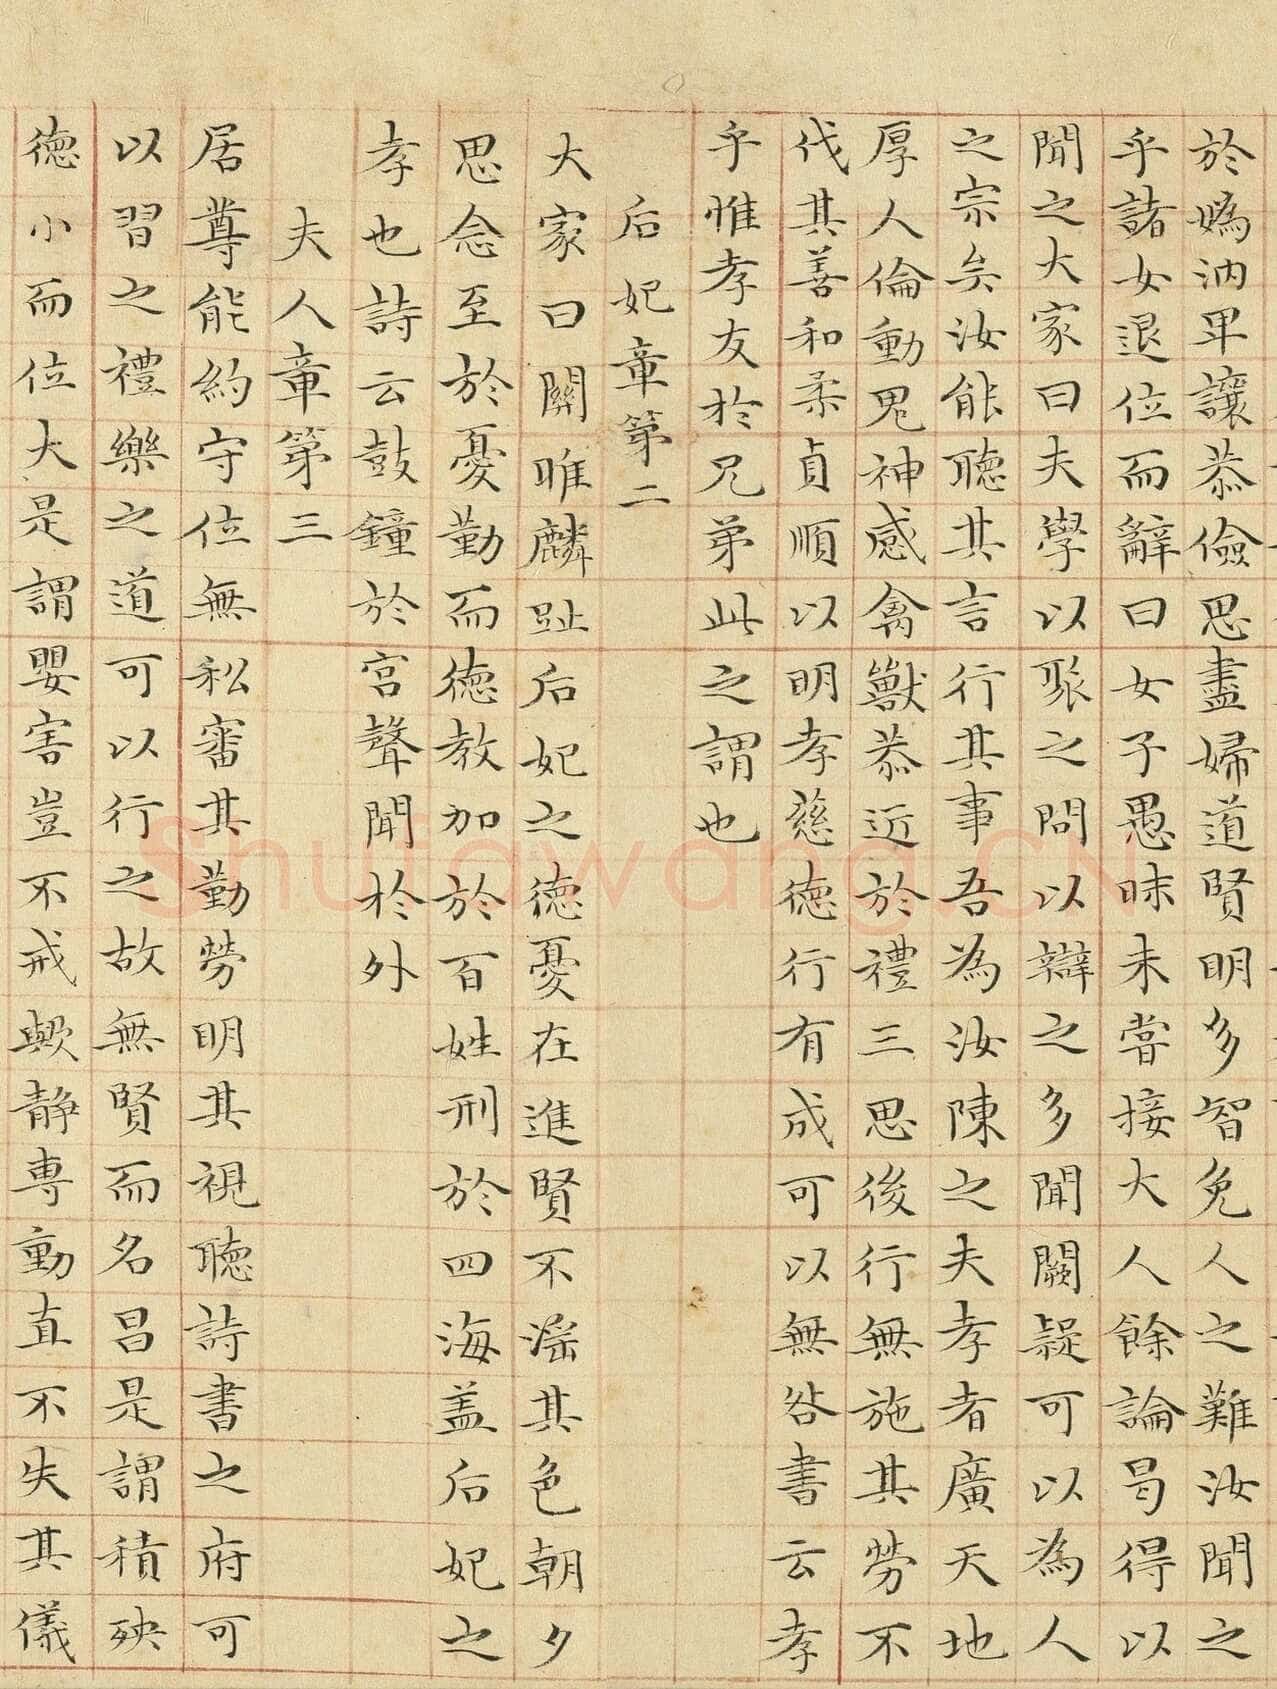 於嬀汭卑讓恭儉思盡婦道賢明多智免人之難汝聞之
乎諸女退位而辭曰女子愚昧未嘗接大人餘論曷得以
聞之大家曰夫學以聚之問以辯之多聞闕疑可以為人
之宗矣汝能聽其言行其事吾為汝陳之夫孝者廣天地
厚人倫動鬼神感禽獸恭近於禮三思後行無施其勞不
伐其善和柔貞順以明孝慈德行有成可以無咎書云孝
乎惟孝友於兄弟此之謂也
后妃章第二
大家曰關雎麟趾后妃之德憂在進賢不淫其色朝夕
思念至於憂勤而德教加於百姓刑於四海盖后妃之
孝也詩云鼓鐘於宮聲聞於外
夫人章第三
居尊能約守位無私審其勤勞明其視聽詩書之府可
以習之禮樂之道可以行之故無賢而名昌是謂積殃
德小而位大是謂嬰害豈不戒歟静専動直不失其儀
Shufawang.CN